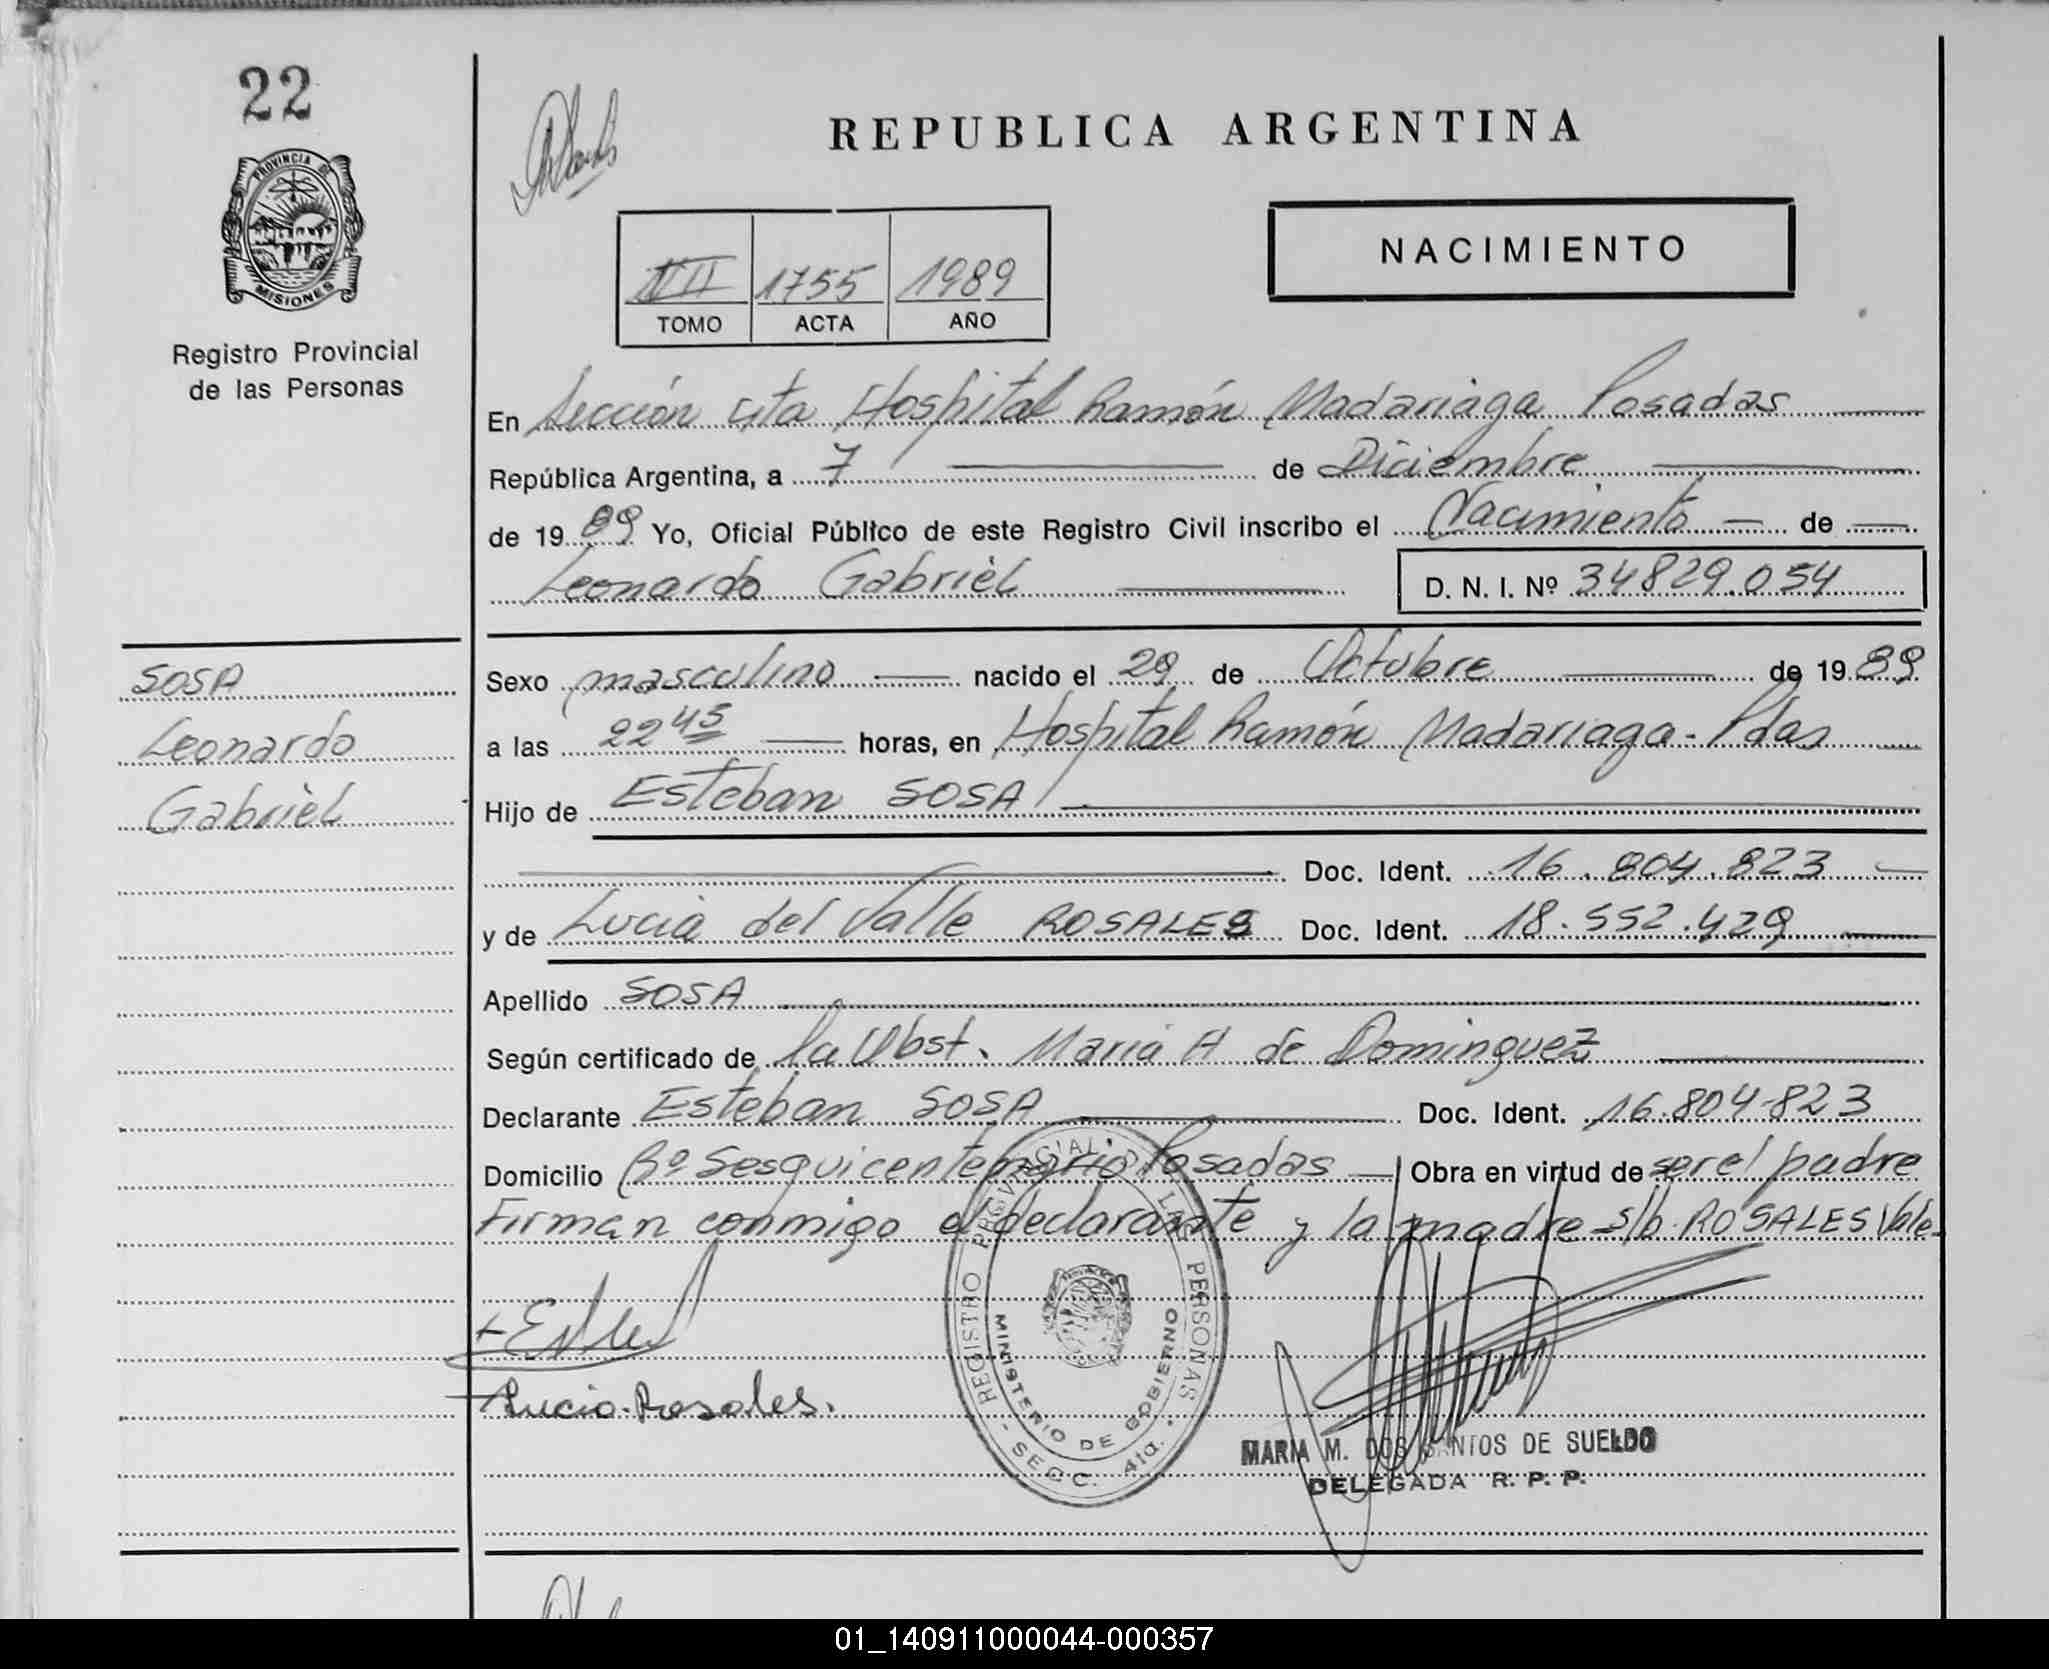 22
PROVINCIA DE
MISIONES
Registro Provincial
de las Personas
REPUBLICA ARGENTINA
NACIMIENTO
1755 1989
TOMO ACTA AÑO
En Sección 4ta Hospital Ramón Madariaga Posadas
República Argentina, a 7 de Diciembre
de 1989 Yo, Oficial Público de este Registro Civil inscribo el Nacimiento de
Leonardo Gabriel D. N. I. Nº 34829.054
SOSA
Leonardo
Gabriel
Sexo masculino nacido el 29 de Octubre de 1989
a las 22 45 horas, en Hospital Ramón Madariaga - Pdas
Hijo de Esteban SOSA
Doc. Ident. 16.804.823
y de Lucia del Valle ROSALES Doc. Ident. 18.552.429
Apellido SOSA
Según certificado de la Obst. Maria A de Dominguez
Declarante Esteban SOSA Doc. Ident. 16.804.823
Domicilio Bº Sesquicentenario Posadas Obra en virtud de ser el padre
Firman conmigo el declarante y la madre s/b. ROSALES Vale-
Lucia Rosales.
REGISTRO PROVINCIAL DE LAS PERSONAS
MINISTERIO DE GOBIERNO
- SECC. 4ta. -
MARIA M. DOS SANTOS DE SUELDO
DELEGADA R. P. P.
01_140911000044-000357